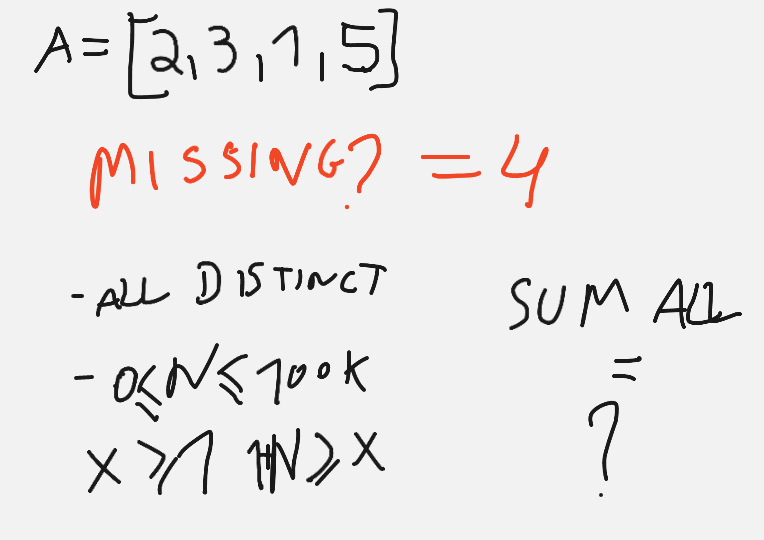 A = [2, 3, 1, 5]
MISSING? = 4
- ALL DISTINCT
- 0 ≤ N ≤ 100K
X ≥ 1 1+N ≥ X
SUM ALL
=
?